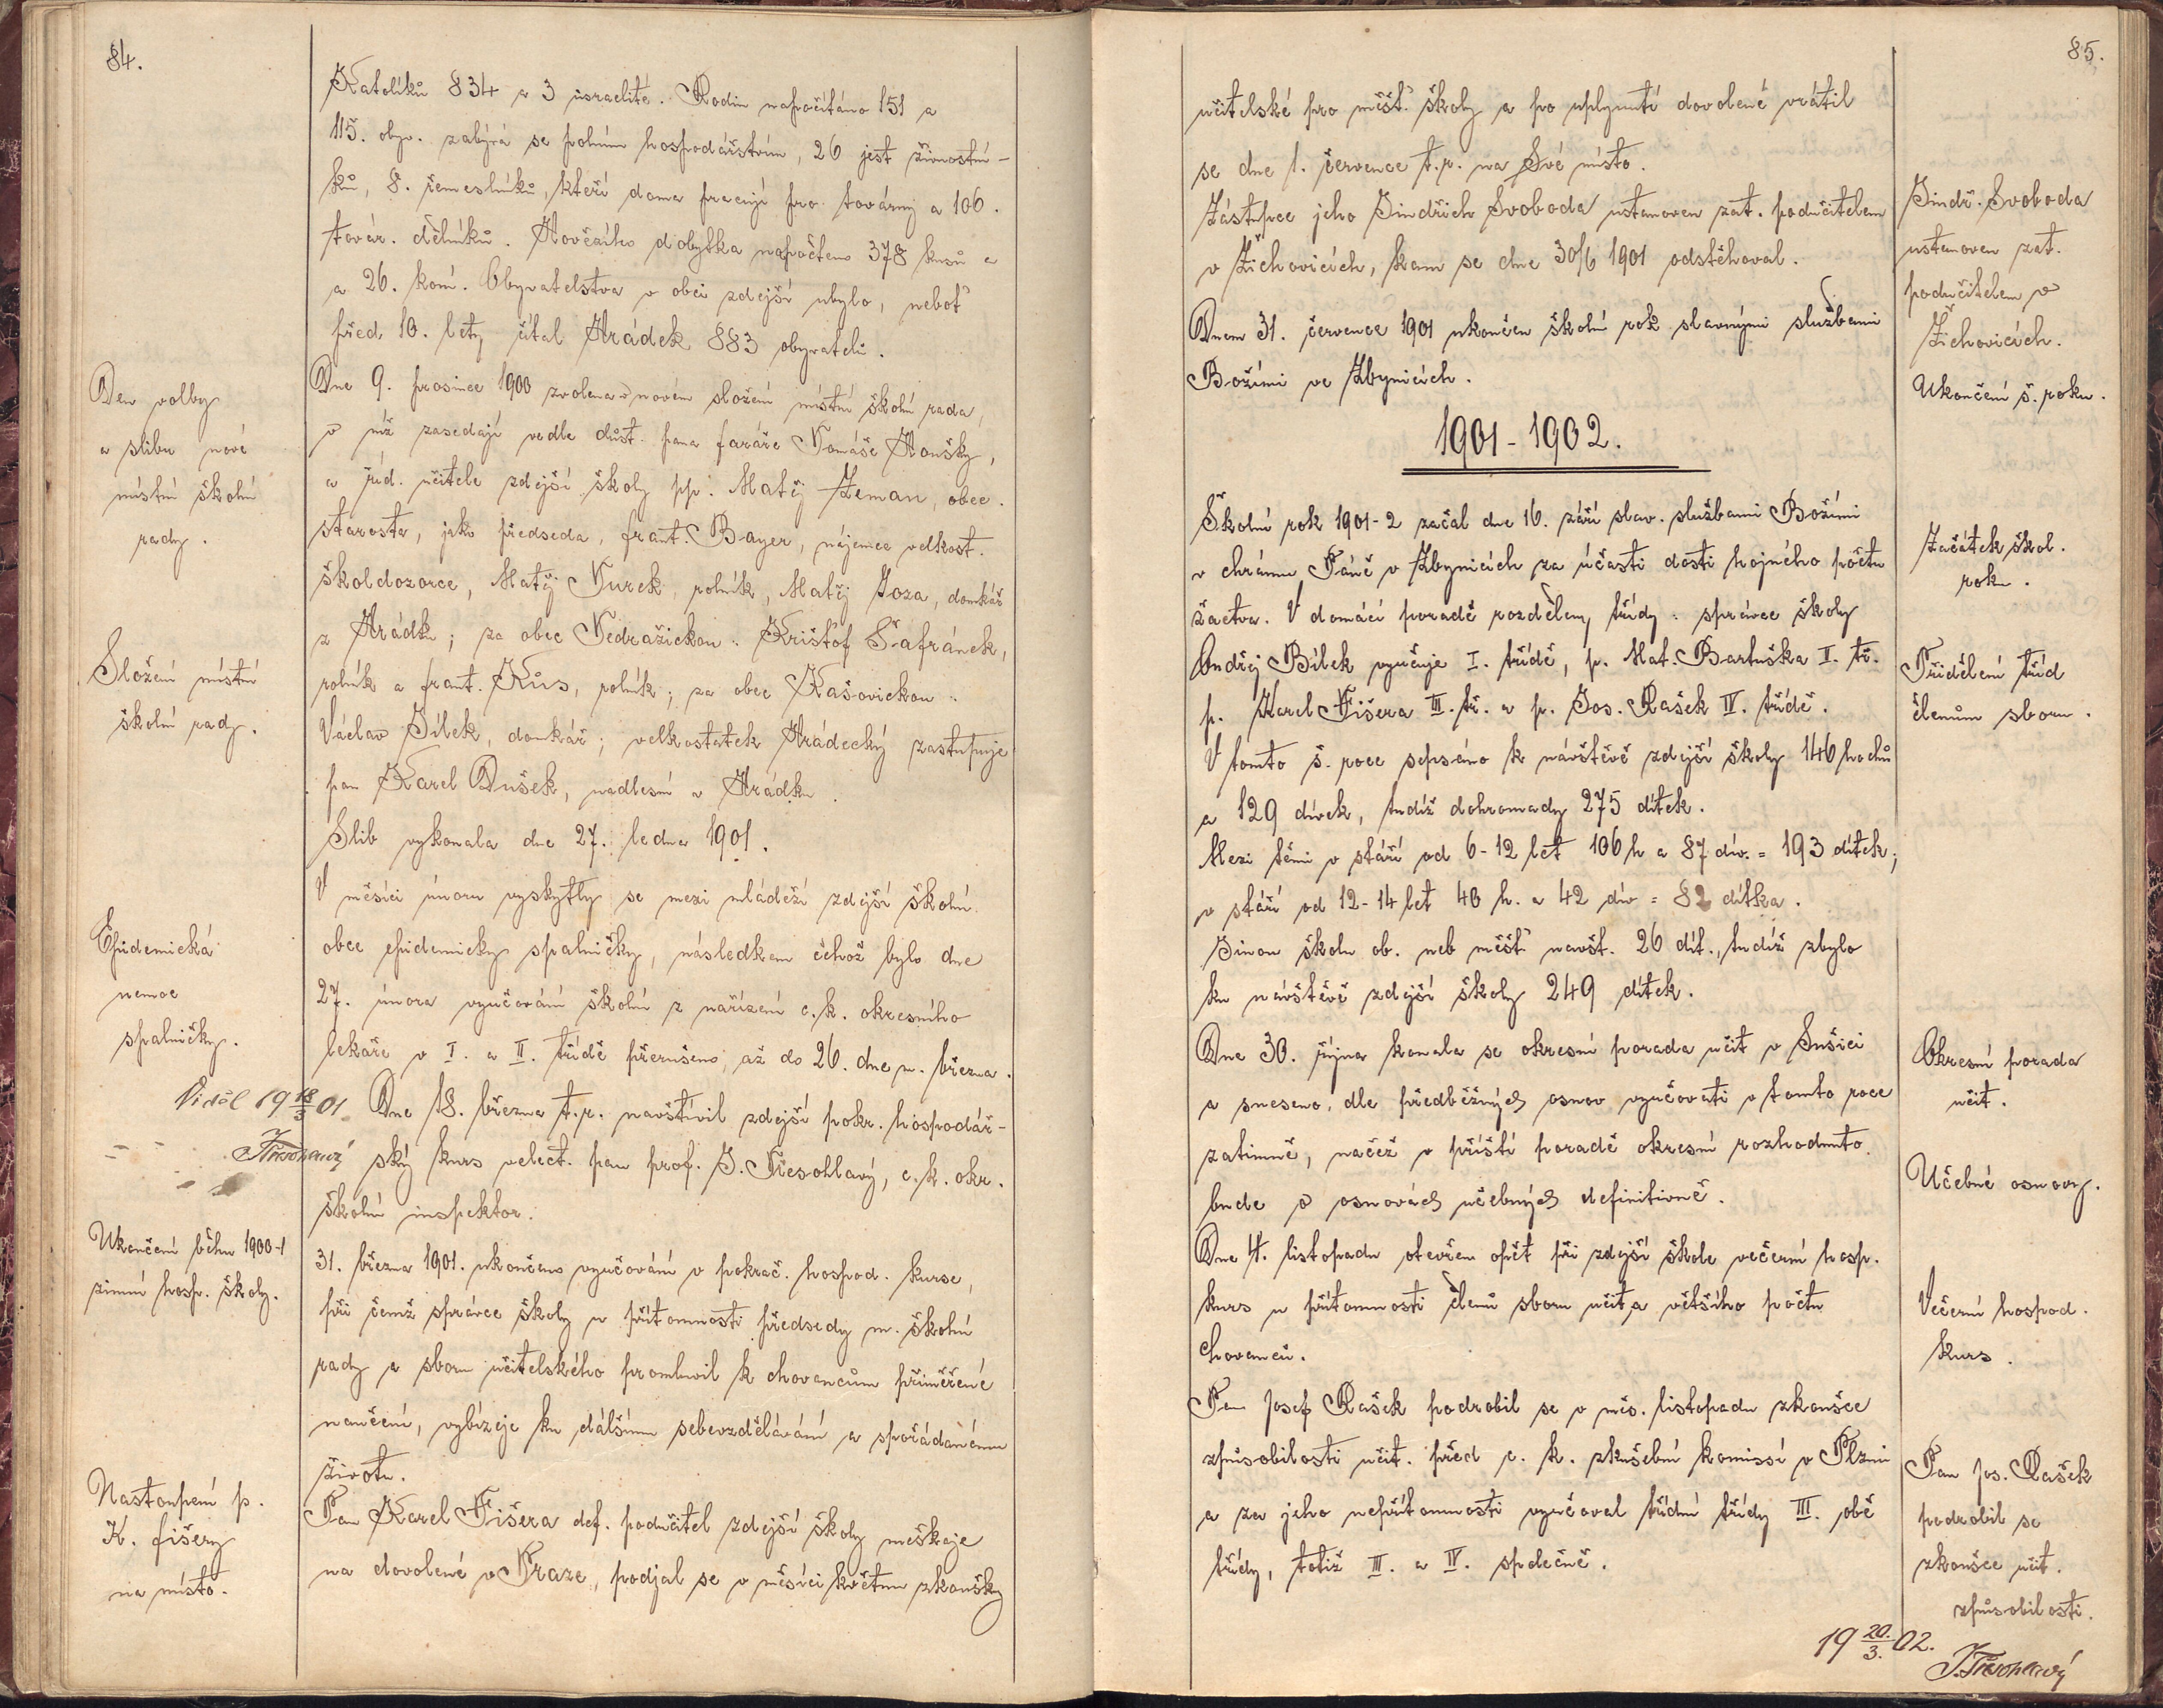 84.
Katolíků 834 a 3 israelité. Rodin napočítáno 151 a
115. obyv. zabývá se polním hospodářstvím, 26 jest živnostní-
ků, 8. řemeslníků, kteří doma pracují pro továrny a 106.
továr. dělníků. Hovězího dobytka napočteno 378 kusů a
a 26. koní. Obyvatelstva v obci zdejší ubylo, neboť
před 10. lety čítal Hrádek 883 obyvatelů.
Den volby
a slibu nové
místní školní
rady.
Dne 9. prosince 1900 zvolena v novém složení místní školní rada,
v níž zasedají vedle důst. pana faráře Tomáše Houšky,
a říd. učitele zdejší školy pp. Matěj Zeman, obec.
starosta, jako předseda, frant. Bayer, nájemce velkost.
školdozorce, Matěj Turek, rolník, Matěj Joza, domkář
z Hrádku; za obec Tedražickou: Krištof Šafránek,
Složení místní
školní rady.
rolník a frant. Kůs, rolník; za obec Kašovickou:
Václav Bílek, domkář; velkostatek Hrádecký zastupuje
pan Karel Dušek, nadlesní v Hrádku.
Slib vykonala dne 27. ledna 1901.
Epidemická
nemoc
spalničky.
V měsíci únoru vyskytly se mezi mládeží zdejší školní
obce epidemicky spalničky, následkem čehož bylo dne
27. února vyučování školní z nařízení c. k. okresního
lekaře v I. a II. třídě přerušeno, až do 26. dne m. března.
Viděl 19 18/3 01
Třesohlavý
Dne 18. března t. r. navštívil zdejší pokr. hospodář-
ský kurs velect. pan prof. J. Třesohlavý, c. k. okr.
školní inspektor.
Ukončení běhu 1900-1
zimní hosp. školy.
31. března 1901. ukončeno vyučování v pokrač. hospod. kurse,
při čemž správce školy u přítomnosti předsedy m. školní
rady a sboru učitelského promluvil k chovancům přiměřené
naučení, vybízeje ku dálšímu sebevzdělávání a spořádanému
životu.
Nastoupení p.
K. fišery
na místo.
Pan Karel Fišera def. podučitel zdejší školy meškaje
na dovolené v Praze, podjal se v měsíci květnu zkoušky
85.
učitelské pro měšť. školy a po uplynutí dovolené vrátil
se dne 1. července t. r. na Své místo.
Zástupce jeho Jindřich Svoboda ustanoven zat. podučitelem
v Žichovicích, kam se dne 30/6 1901 odstěhoval.
Jindř. Svoboda
ustanoven zat.
podučitelem v
Žichovicích.
Dnem 31. července 1901 ukončen školní rok slavnými službami
Božími ve Zbynicích.
Ukončení š. roku.
1901-1902.
Školní rok 1901-2 začal dne 16. září slav. službami Božími
v chrámu Páně v Zbynicích za účasti dosti hojného počtu
žactva. V domácí poradě rozděleny třídy: správce školy
Ondřej Bílek vyučuje I. třídě, p. Mat. Bartuška II. tř.
p. Karel Fišera III. tř. a p. Jos. Rašek IV. třídě.
Začátek škol.
roku.
Přidělení tříd
členům sboru.
V tomto š. roce sepsáno k návštěvě zdejší školy 146 hochů
a 129 dívek, tudíž dohromady 275 dítek.
Mezi těmi v stáří od 6-12 let 106 h a 87 dív. = 193 dítek;
v stáří od 12-14 let 40 h. a 42 dív = 82 dítka.
Jinou školu ob. neb měšť navšt. 26 dít., tudíž zbylo
ku návštěvě zdejší školy 249 dítek.
Dne 30. října konala se okresní porada učit v Sušici
a sneseno, dle předběžných osnov vyučovati v tomto roce
zatimně, načež v příští poradě okresní rozhodnuto
bude o osnovách učebných definitivně.
Okresní porada
učit.
Učebné osnovy.
Dne 4. listopadu otevřen opět při zdejší škole večerní hosp.
kurs u přítomnosti členů sboru učit. a většího počtu
chovanců.
Večerní hospod.
kurs.
Pan Josef Rašek podrobil se v měs. listopadu zkoušce
způsobilosti učit. před c. k. zkušební komissí v Plzni
a za jeho nepřítomnosti vyučoval třídní třídy III. obě
třídy, totiž III. a IV. společně.
Pan Jos. Rašek
podrobil se
zkoušce učit.
způsobilosti.
19 20./3. 02.
J. Třesohlavý